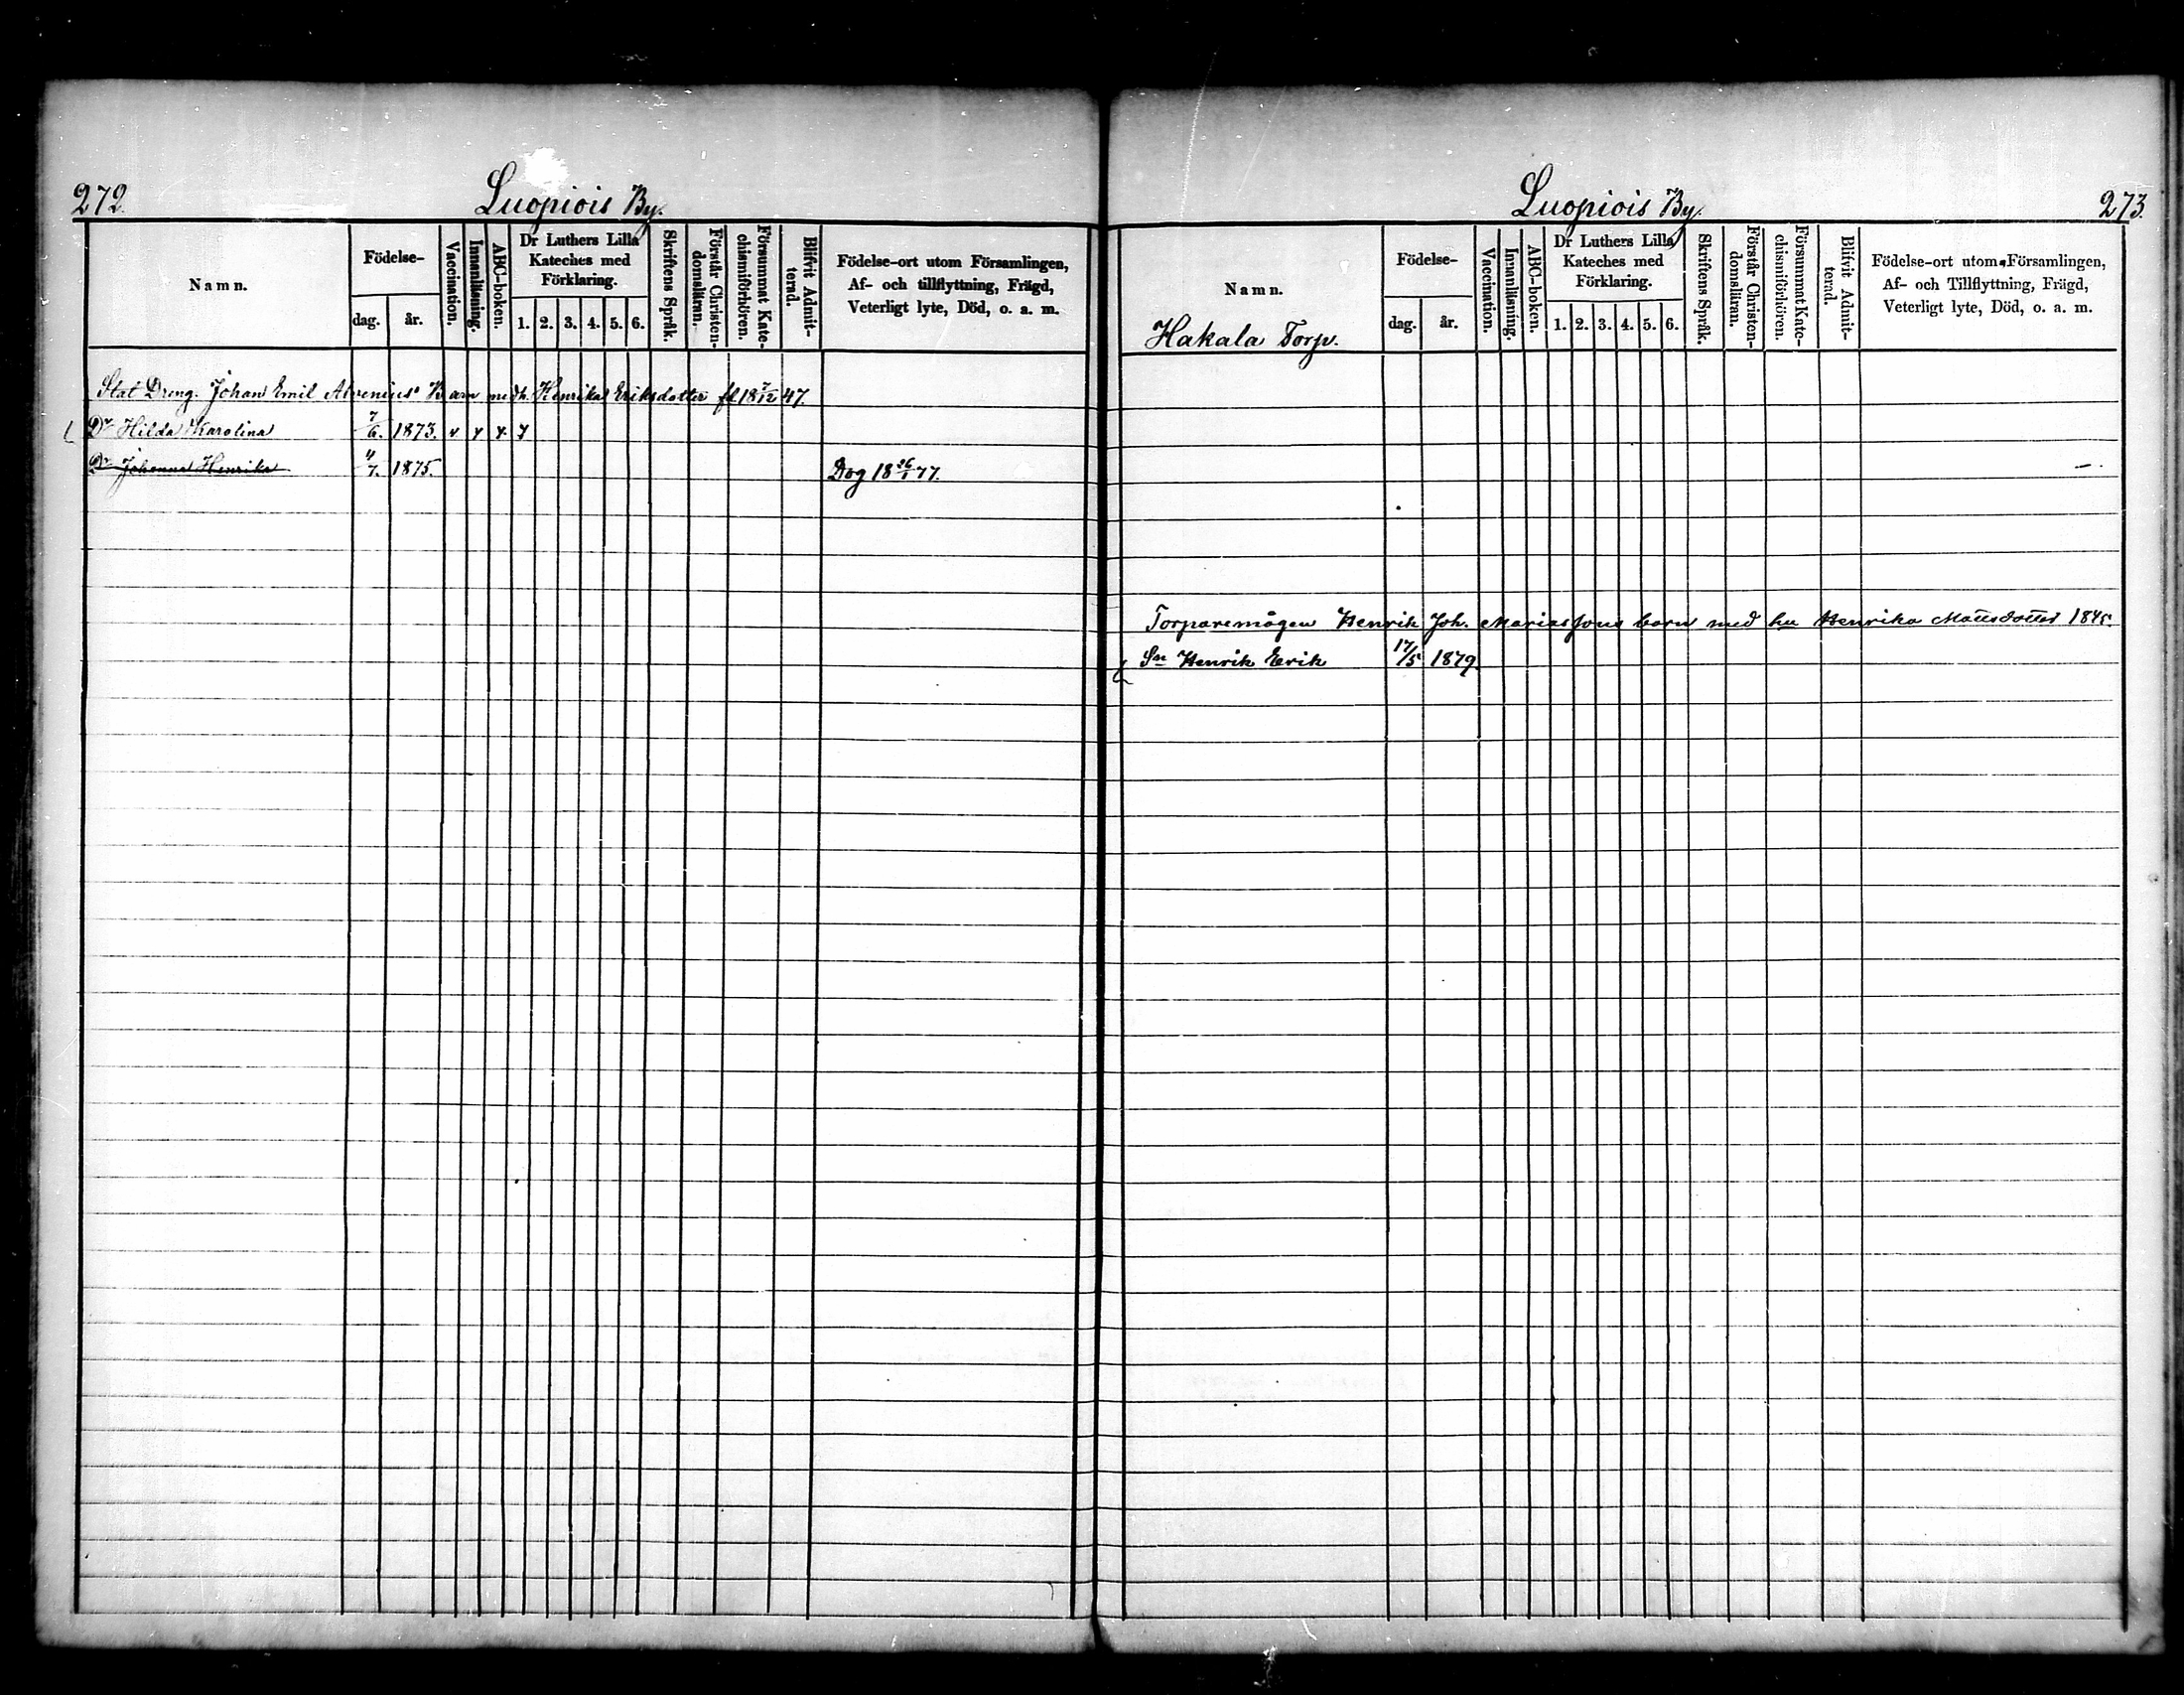 272.
Luopiois By.
Namn.
Födelse-
dag.
år.
Vaccination.
Innanläsning.
ABC-boken.
Dr Luthers Lilla
Kateches med
Förklaring.
1. 2. 3. 4. 5. 6.
Skriftens Språk.
Förstår Christen-
domsläran.
Försummat Kate-
chismiförhören.
Blifvit Admit-
terad.
Födelse-ort utom Församlingen,
Af- och tillflyttning, Frägd,
Veterligt lyte, Död, o. a. m.
Stat Dreng. Johan Emil Alvenius' Barn med h. Henrika Eriksdotter fd 18 7/12 47.
Dr Hilda Karolina 7/6. 1873.
Dr Johanna Henrika 4/7. 1875. Dog 18 26/1 77.
Luopiois By.
273.
Namn.
Hakala Torp.
Födelse-
dag.
år.
Vaccination.
Innanläsning.
ABC-boken.
Dr Luthers Lilla
Kateches med
Förklaring.
1. 2. 3. 4. 5. 6.
Skriftens Språk.
Förstår Christen-
domsläran.
Försummat Kate-
chismiförhören.
Blifvit Admit-
terad.
Födelse-ort utom Församlingen,
Af- och Tillflyttning, Frägd,
Veterligt lyte, Död, o. a. m.
Torparemågen Henrik Joh. Mariassons barn med hu Henrika Mattsdotter 1845.
Sn Henrik Erik 17/5 1879.